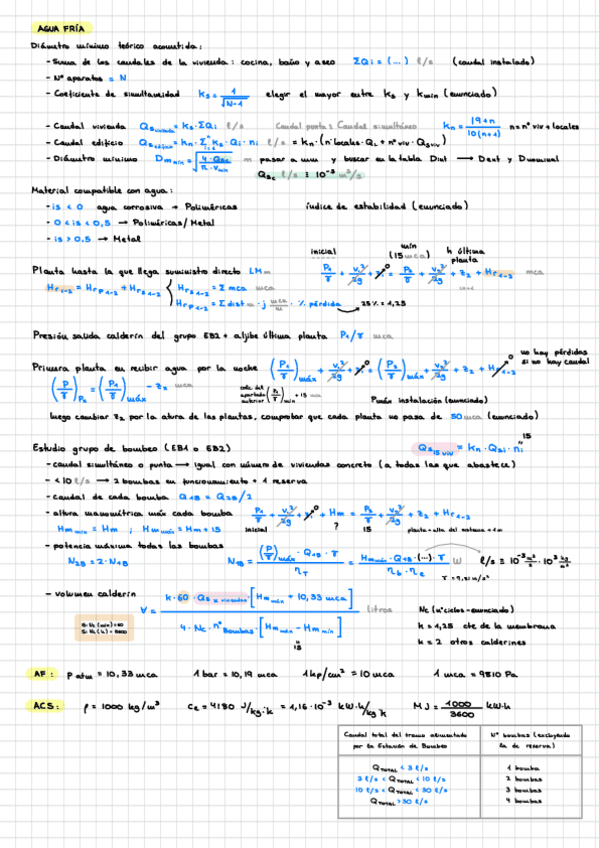 AGUA FRÍA
Diámetro mínimo teórico acometida:
- Suma de los caudales de la vivienda: cocina, baño y aseo ΣQi = (...) l/s (caudal instalado)
- Nº aparatos = N
- Coeficiente de simultaneidad Ks = 1/√(N-1) elegir el mayor entre Ks y Kmin (enunciado)
- Caudal vivienda Qs vivienda = Ks·ΣQi l/s Caudal punta = Caudal simultáneo Kn = (19+n)/(10(n+1)) n = nº viv + locales
- Caudal edificio Qs edificio = Kn·Σ Ks·Qi·ni l/s = Kn·(nº locales·Qi + nº viv·Qsviv)
- Diámetro mínimo Dmmin = √(4·Qsc/(π·vmin)) m pasar a mm y buscar en la tabla Dint → Dext y Dnominal
Qsc l/s = 10⁻³ m³/s
Material compatible con agua:
- is < 0 agua corrosiva → Poliméricas índice de estabilidad (enunciado)
- 0 < is < 0,5 → Poliméricas/Metal
- is > 0,5 → Metal
inicial mín (15 mca) h última planta
Planta hasta la que llega suministro directo LM m P1/γ + v1²/2g + z1 = P2/γ + v2²/2g + z2 + Hr1-2 mca
Hr1-2 = Hrp1-2 + Hrs1-2 { Hrs1-2 = Σ mca mca
Hrp1-2 = Σ dist m · j mca/m · % pérdida 25% = 1,25
Presión salida calderín del grupo EB2 + aljibe última planta P1/γ mca
Primera planta en recibir agua por la noche (P1/γ)máx + v1²/2g + z1 = (P2/γ)máx + v2²/2g + z2 + Hr1-2 0 no hay pérdidas si no hay caudal
(P/γ)P2 = (P1/γ)máx - z2 mca calc del apartado anterior (P1/γ)min + 15 mca Pmáx instalación (enunciado)
luego cambiar z2 por la altura de las plantas, comprobar que cada planta no pasa de 50 mca (enunciado)
Estudio grupo de bombeo (EB1 o EB2) Qs15viv = Kn·Qsi·ni 15
- caudal simultáneo o punta → igual con número de viviendas concreto (a todas las que abastece)
- < 10 l/s → 2 bombas en funcionamiento + 1 reserva
- caudal de cada bomba Q1B = Q2B/2
- altura manométrica máx cada bomba P1/γ + v1²/2g + z1 + Hm = P2/γ + v2²/2g + z2 + Hr1-2
Hm min = Hm ; Hm máx = Hm + 15 inicial ? 15
- potencia máxima todas las bombas
N2B = 2·N1B N1B = (P/γ)máx·Q1B·γ / ηT = Hmmin·Q1B·(...)·γ / ηb·ηe W l/s = 10⁻³ m³/s · 10³ kg/m³
γ = 9,81 m/s²
- volumen calderín V = k·60·Qs x viviendas [Hm min + 10,33 mca] / 4·Nc·nº Bombas [Hm máx - Hm min] litros
15
Nc (nº ciclos - enunciado)
k = 1,25 cte de la membrana
k = 2 otros calderines
Si Nc (min) = 60
Si Nc (h) = 3600
AF: p atm = 10,33 mca 1 bar = 10,19 mca 1 kp/cm² = 10 mca 1 mca = 9810 Pa
ACS: ρ = 1000 kg/m³ Ce = 4180 J/kg·k = 1,16·10⁻³ kW·h/kg·k MJ = 1000/3600 kW·h
Caudal total del tramo alimentado por la Estación de Bombeo
Nº bombas (excluyendo la de reserva)
QTOTAL < 3 l/s 1 bomba
3 l/s < QTOTAL < 10 l/s 2 bombas
10 l/s < QTOTAL < 30 l/s 3 bombas
QTOTAL > 30 l/s 4 bombas